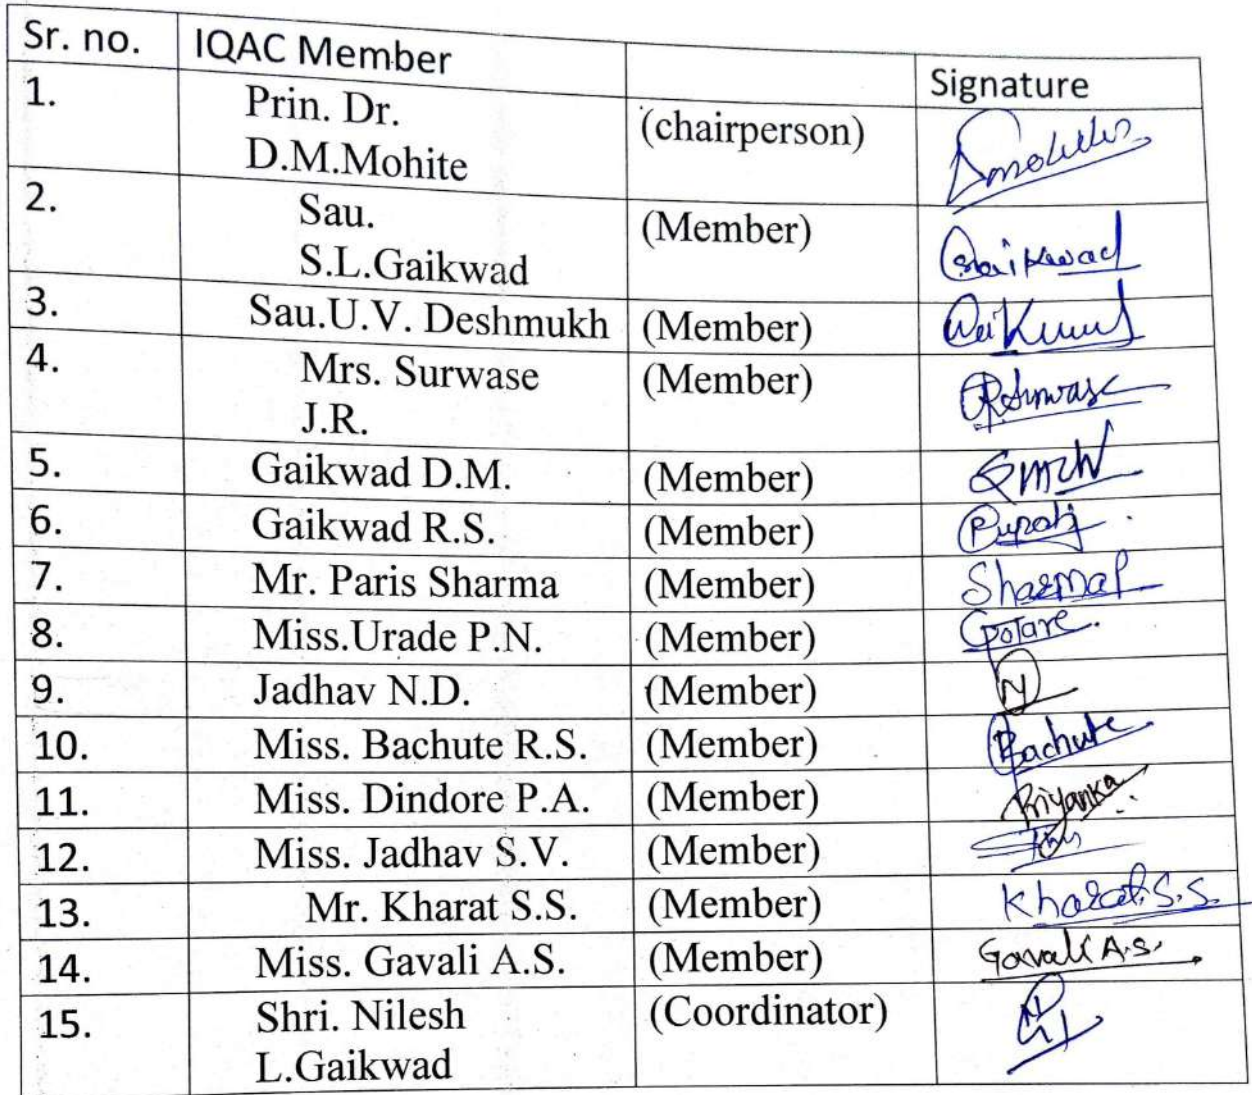 Sr. no. IQAC Member Signature
1. Prin. Dr. (chairperson)
D.M.Mohite
2. Sau. (Member)
S.L.Gaikwad Gaikwad
3. Sau.U.V. Deshmukh (Member)
4. Mrs. Surwase (Member)
J.R.
5. Gaikwad D.M. (Member)
6. Gaikwad R.S. (Member)
7. Mr. Paris Sharma (Member) SharmaP
8. Miss.Urade P.N. (Member)
9. Jadhav N.D. (Member)
10. Miss. Bachute R.S. (Member) Bachute
11. Miss. Dindore P.A. (Member) Priyanka
12. Miss. Jadhav S.V. (Member)
13. Mr. Kharat S.S. (Member) Kharat.S.S.
14. Miss. Gavali A.S. (Member) Gavali A.S.
15. Shri. Nilesh (Coordinator)
L.Gaikwad